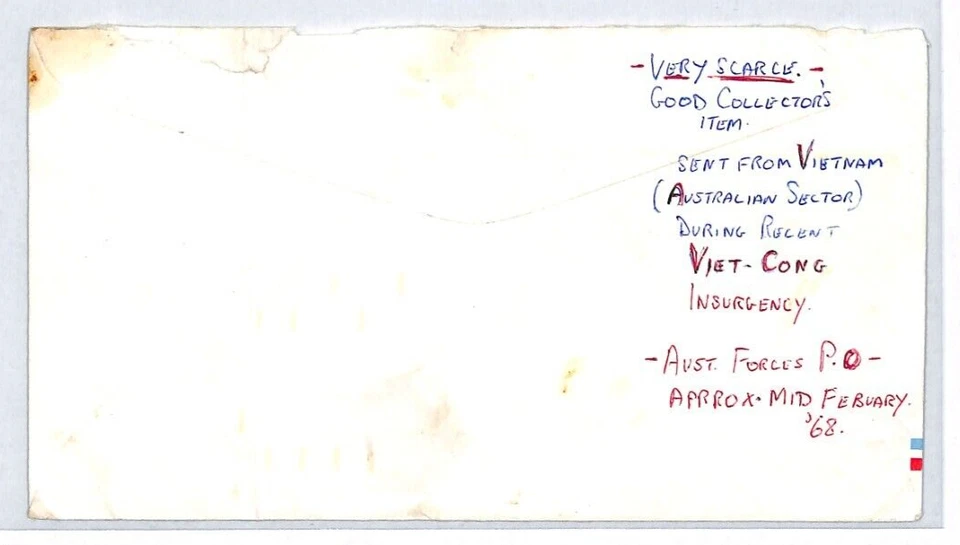 - VERY SCARCE. -
GOOD COLLECTOR'S
ITEM.
SENT FROM VIETNAM
(AUSTRALIAN SECTOR)
DURING RECENT
VIET-CONG
INSURGENCY.
- AUST. FORCES P.O -
APRROX. MID FEBUARY.
'68.